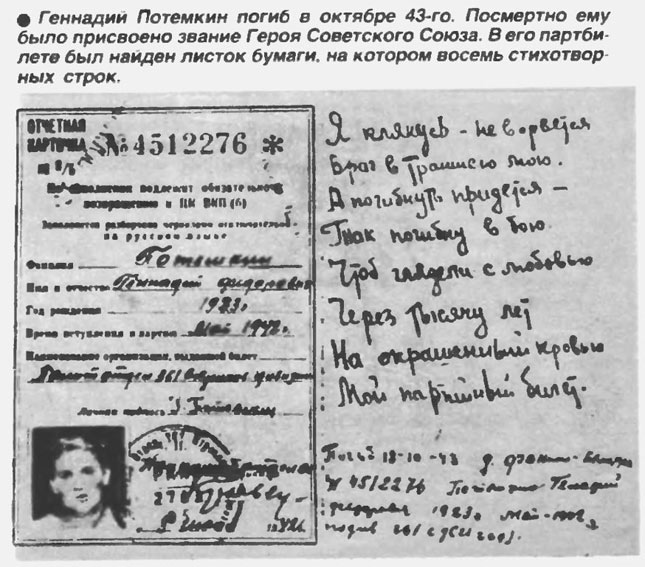 ● Геннадий Потемкин погиб в октябре 43-го. Посмертно ему
было присвоено звание Героя Советского Союза. В его партби-
лете был найден листок бумаги, на котором восемь стихотвор-
ных строк.
ОТЧЕТНАЯ
КАРТОЧКА № 4512276 *
По заполнении подлежит обязательному
возвращению в ЦК ВКП(б)
Заполняется разборчиво чернилами
на русском языке
Фамилия Потемкин
Имя и отчество Геннадий
Год рождения 1923г
Время вступления в партию Май 1942г.
Наименование организации, выдавшей билет
Личная подпись
Я клянусь - не ворвется
Враг в траншею мою.
А погибнуть придется –
Так погибну в бою.
Чтоб глядели с любовью
Через тысячу лет
На окрашенный кровью
Мой партийный билет.
18-10-43 д.
№ 4512276 Геннадий
1923г Май-1942г